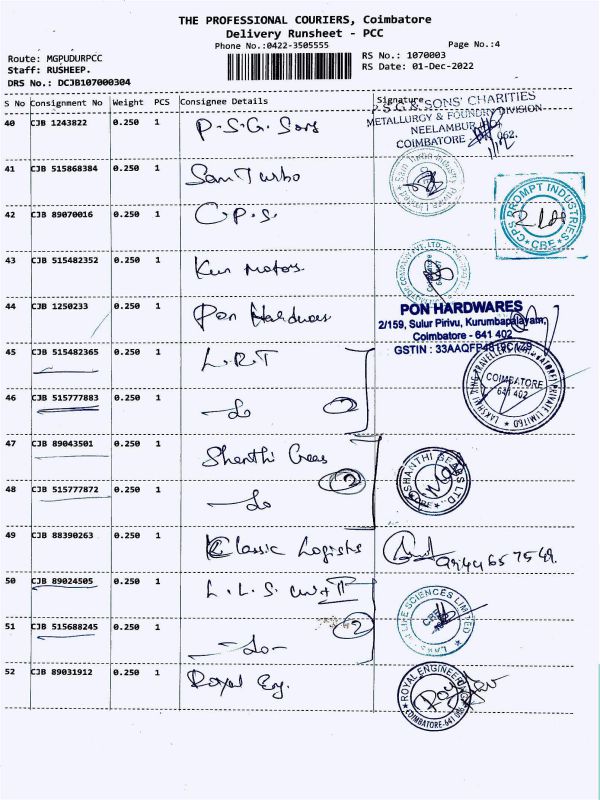 THE PROFESSIONAL COURIERS, Coimbatore
Delivery Runsheet - PCC
Phone No.:0422-3505555
Page No.:4
Route: MGPUDURPCC
Staff: RUSHEEP.
DRS No.: DCJB107000304
RS No.: 1070003
RS Date: 01-Dec-2022
S No Consignment No Weight PCS Consignee Details Signature
S.G & SONS' CHARITIES
METALLURGY & FOUNDRY DIVISION
NEELAMBUR
COIMBATORE 062.
40 CJB 1243822 0.250 1 P.S.G. Sons
41 CJB 515868384 0.250 1 Sam Turbo
Sam Turbo Industry Private Limited
42 CJB 89070016 0.250 1 C.P.S.
CPS PROMPT INDUSTRIES
CBE
43 CJB 515482352 0.250 1 Kun Motors
44 CJB 1250233 0.250 1 Pon Hardwares
PON HARDWARES
2/159, Sulur Pirivu, Kurumbapalayam,
Coimbatore - 641 402
GSTIN : 33AAQFP4819C1Z9
45 CJB 515482365 0.250 1 L.R.T
COIMBATORE
641 402
PRIVATE LIMITED
46 CJB 515777883 0.250 1 Do 2
47 CJB 89043501 0.250 1 Shanthi Gears
SHANTHI GEARS LTD.
48 CJB 515777872 0.250 1 Do 2
49 CJB 88390263 0.250 1 Classic Logistis
9944657549.
50 CJB 89024505 0.250 1 L.L.S. Unit II
LIFE SCIENCES LIMITED
CBE
51 CJB 515688245 0.250 1 Do 2
52 CJB 89031912 0.250 1 Royal Eng.
ROYAL ENGINEERING
COIMBATORE-641